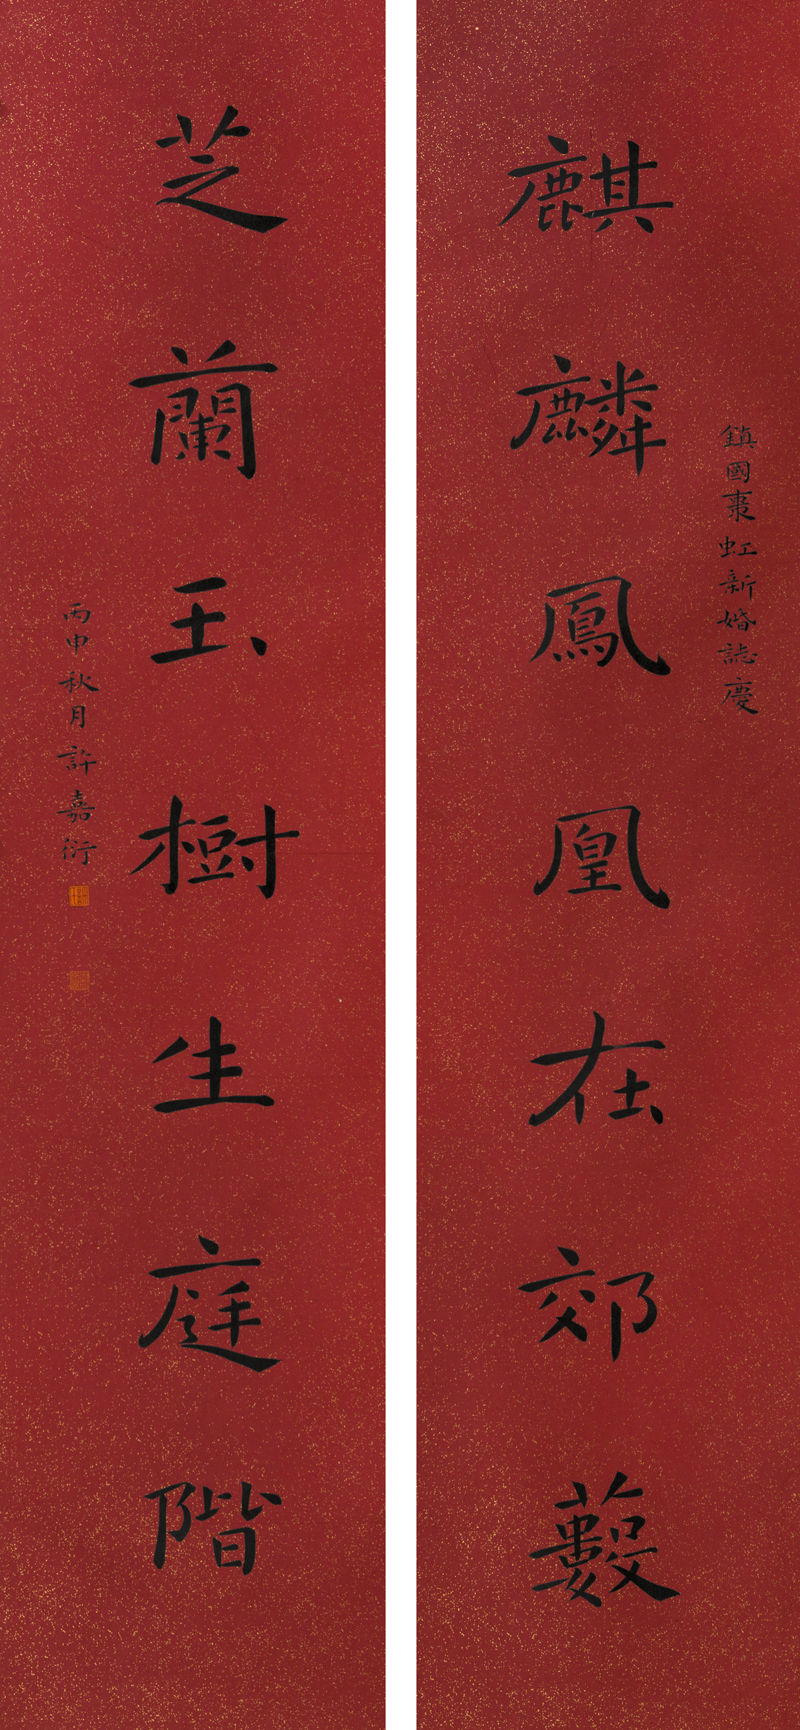 鎮國棗虹新婚誌慶
麒麟鳳凰在郊藪
芝蘭玉樹生庭階
丙申秋月許嘉衍